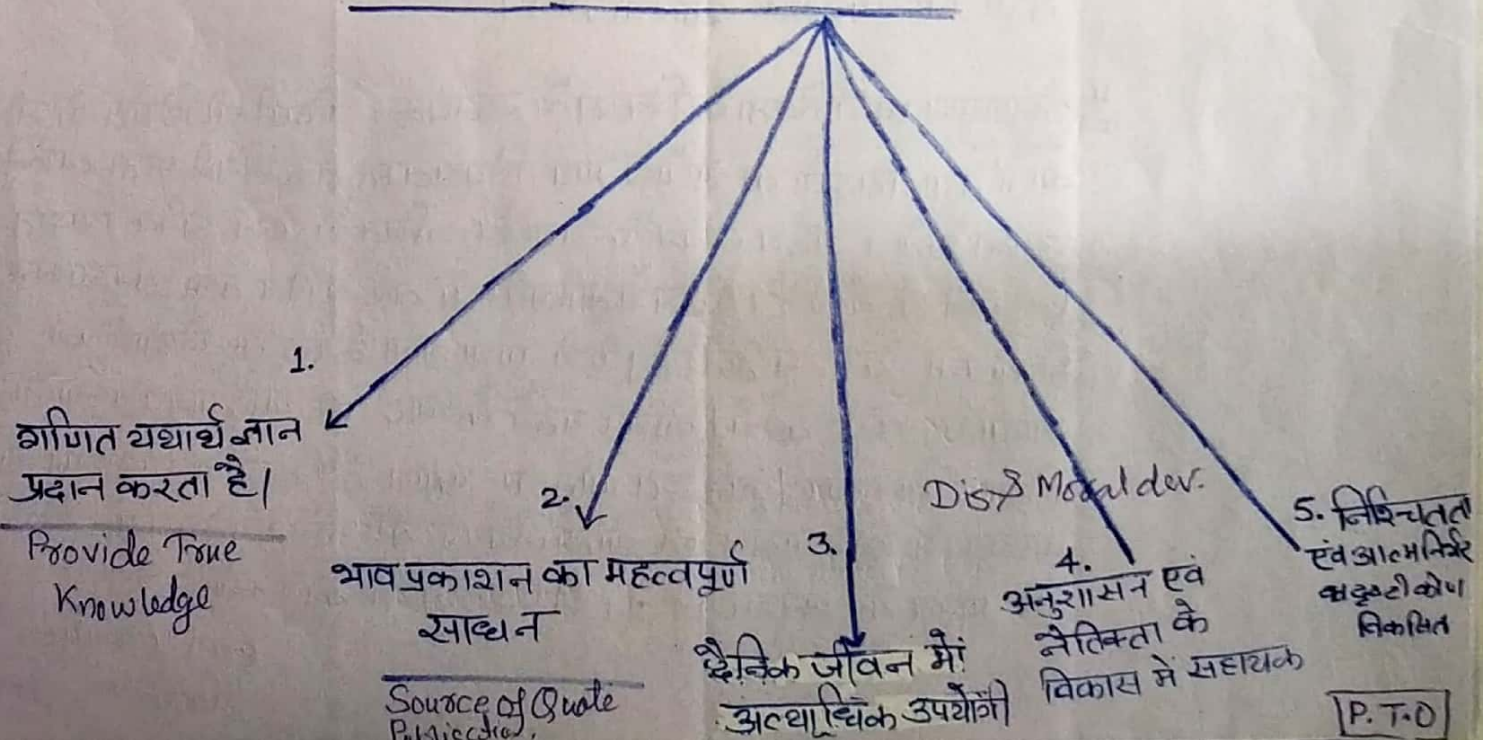 1.
गणित यथार्थ ज्ञान
प्रदान करता है।
Provide True
Knowledge
2.
भाव प्रकाशन का महत्वपूर्ण
साधन
Source of Quote
Publication.
3.
दैनिक जीवन में
अत्याधिक उपयोगी
Dis & Moral dev.
4.
अनुशासन एवं
नैतिकता के
विकास में सहायक
5. निश्चितता
एवं आत्मनिर्भर
दृष्टीकोण
विकसित
P.T.O